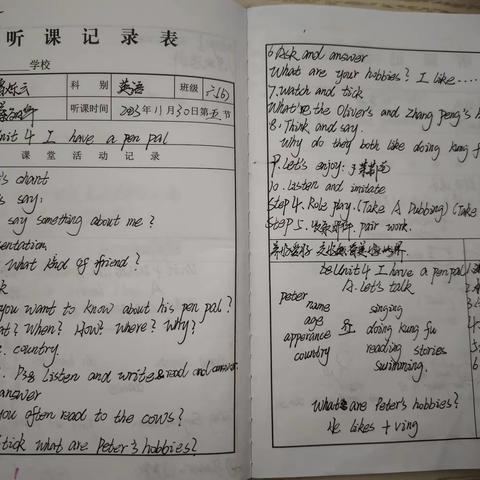 听课记录表
学校
科 别 英语 班级 六(6)
听课时间 2023年11月30日第五节
Unit 4 I have a pen pal
课堂活动记录
's chant
s say:
say something about me?
sentation
What kind of friend?
you want to know about his pen pal?
at? When? How? Where? Why?
country.
P38 Listen and write & read and answer
answer
you often read to the cows?
tick what are Peter's hobbies?
6. Ask and answer
What are your hobbies? I like……
7. watch and tick
What're the Oliver's and Zhang Peng's h
8. Think and say.
Why do they both like doing kung f
9. Let's enjoy:
10. Listen and imitate
Step 4. Role play. (Take A Dubbing) (Take
Step 5. pair work.
Unit 4 I have a pen pal
A. Let's talk
peter
name singing
age
apperance doing kung fu
country reading stories
swimming.
What are Peter's hobbies?
He likes + ving